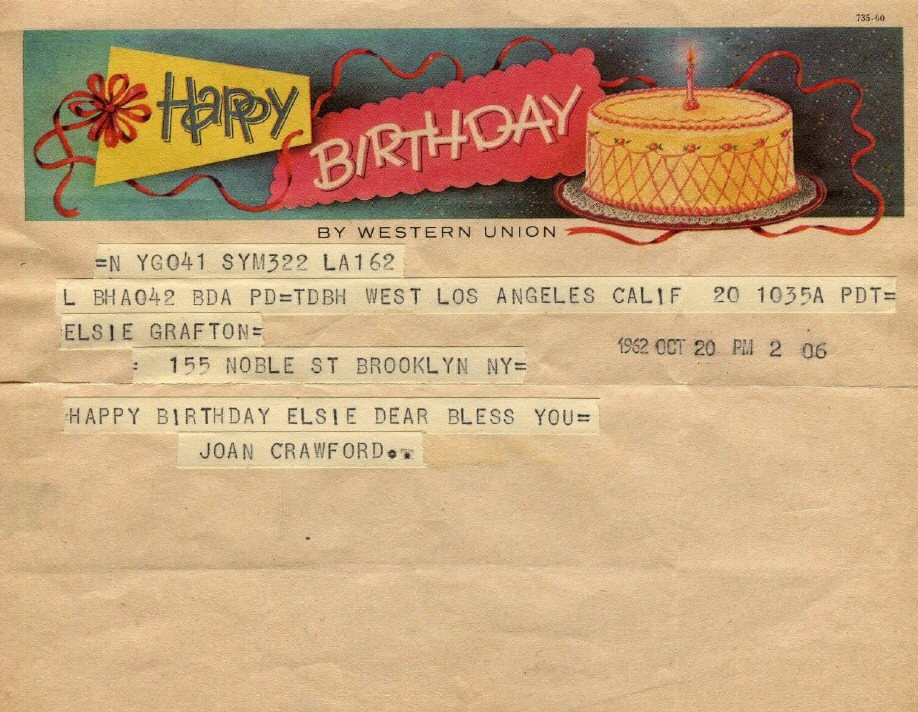 735-60
Happy
BIRTHDAY
BY WESTERN UNION
=N YG041 SYM322 LA162
L BHA042 BDA PD=TDBH WEST LOS ANGELES CALIF 20 1035A PDT=
ELSIE GRAFTON=
1962 OCT 20 PM 2 06
= 155 NOBLE ST BROOKLYN NY=
HAPPY BIRTHDAY ELSIE DEAR BLESS YOU=
JOAN CRAWFORD..